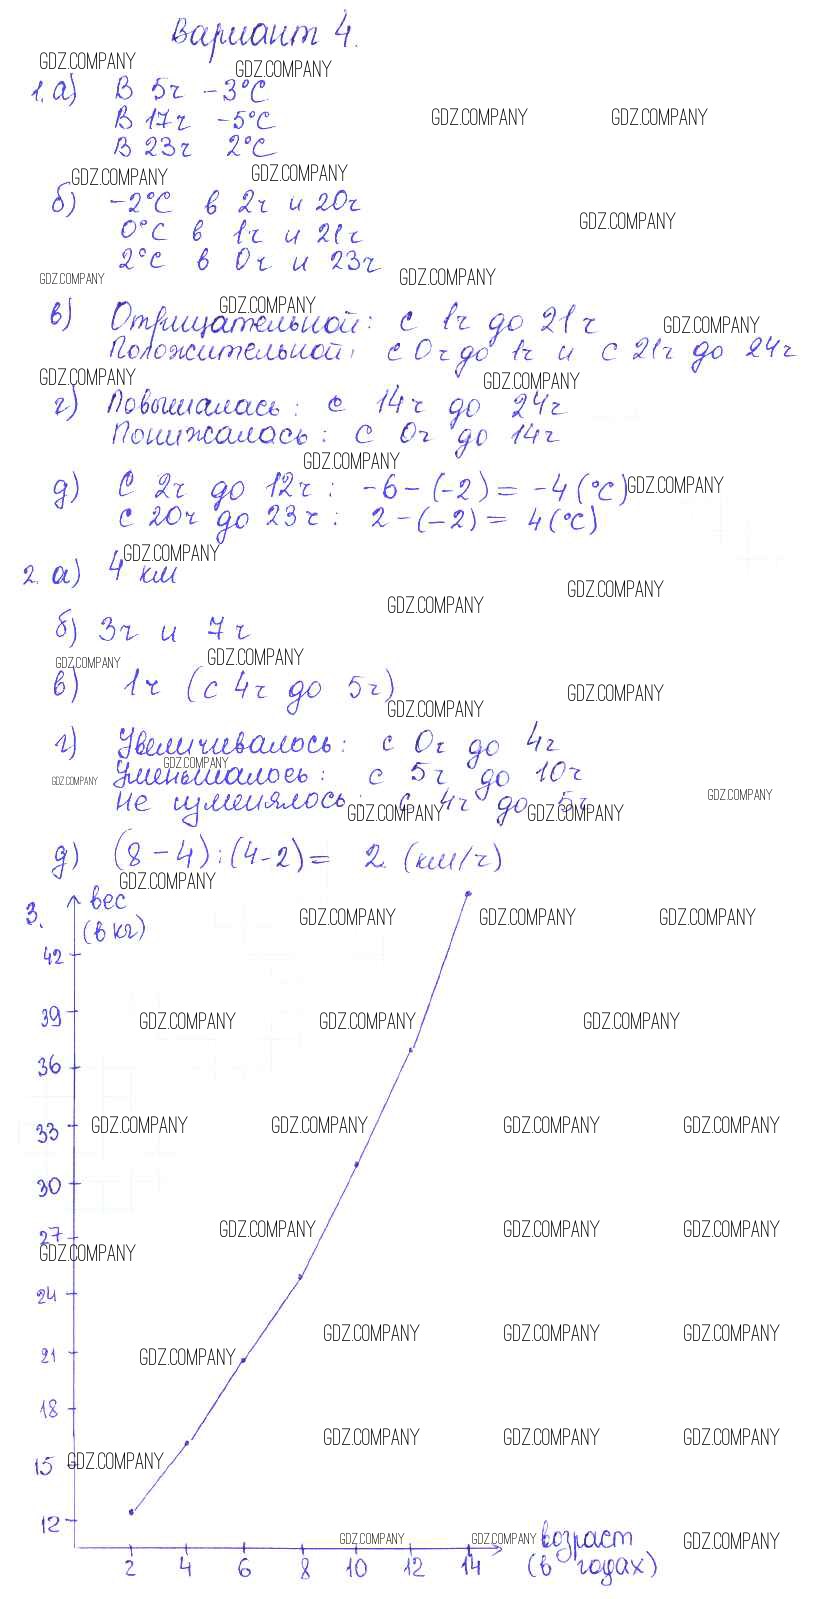 Вариант 4.
GDZ.COMPANY GDZ.COMPANY
1. а) В 5ч -3°C
GDZ.COMPANY GDZ.COMPANY
В 17ч -5°C
В 23ч 2°C
GDZ.COMPANY GDZ.COMPANY
б) -2°C в 2ч и 20ч
GDZ.COMPANY
0°C в 1ч и 21ч
2°C в 0ч и 23ч
GDZ.COMPANY GDZ.COMPANY
GDZ.COMPANY
в) Отрицательной: с 1ч до 21ч
GDZ.COMPANY
Положительной: с 0ч до 1ч и с 21ч до 24ч
GDZ.COMPANY GDZ.COMPANY
г) Повышалась: с 14ч до 24ч
Понижалась: с 0ч до 14ч
GDZ.COMPANY
д) С 2ч до 12ч: -6-(-2)= -4(°C)
GDZ.COMPANY
с 20ч до 23ч: 2-(-2)= 4(°C)
GDZ.COMPANY
2. а) 4 км
GDZ.COMPANY
GDZ.COMPANY
б) 3ч и 7ч
GDZ.COMPANY GDZ.COMPANY
в) 1ч (с 4ч до 5ч)
GDZ.COMPANY
GDZ.COMPANY
г) Увеличивалось: с 0ч до 4ч
GDZ.COMPANY
Уменьшалось: с 5ч до 10ч
GDZ.COMPANY
Не изменялось: с 4ч до 5ч
GDZ.COMPANY
GDZ.COMPANY GDZ.COMPANY
д) (8-4):(4-2)= 2 (км/ч)
GDZ.COMPANY
3. вес
(в кг)
GDZ.COMPANY GDZ.COMPANY GDZ.COMPANY
42
39
GDZ.COMPANY GDZ.COMPANY GDZ.COMPANY
36
33
GDZ.COMPANY GDZ.COMPANY GDZ.COMPANY GDZ.COMPANY
30
27
GDZ.COMPANY GDZ.COMPANY GDZ.COMPANY
GDZ.COMPANY
24
GDZ.COMPANY GDZ.COMPANY GDZ.COMPANY
21
GDZ.COMPANY
18
GDZ.COMPANY GDZ.COMPANY GDZ.COMPANY
15
GDZ.COMPANY
12
GDZ.COMPANY GDZ.COMPANY GDZ.COMPANY
возраст
(в годах)
2 4 6 8 10 12 14